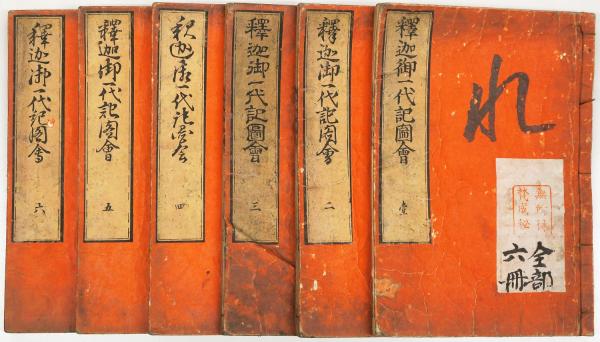 れ
全部
六冊
釋迦御一代記圖會 壹
釋迦御一代記圖會 二
釋迦御一代記圖會 三
釈迦御一代記圖会 四
釋迦御一代記圖會 五
釋迦御一代記圖會 六